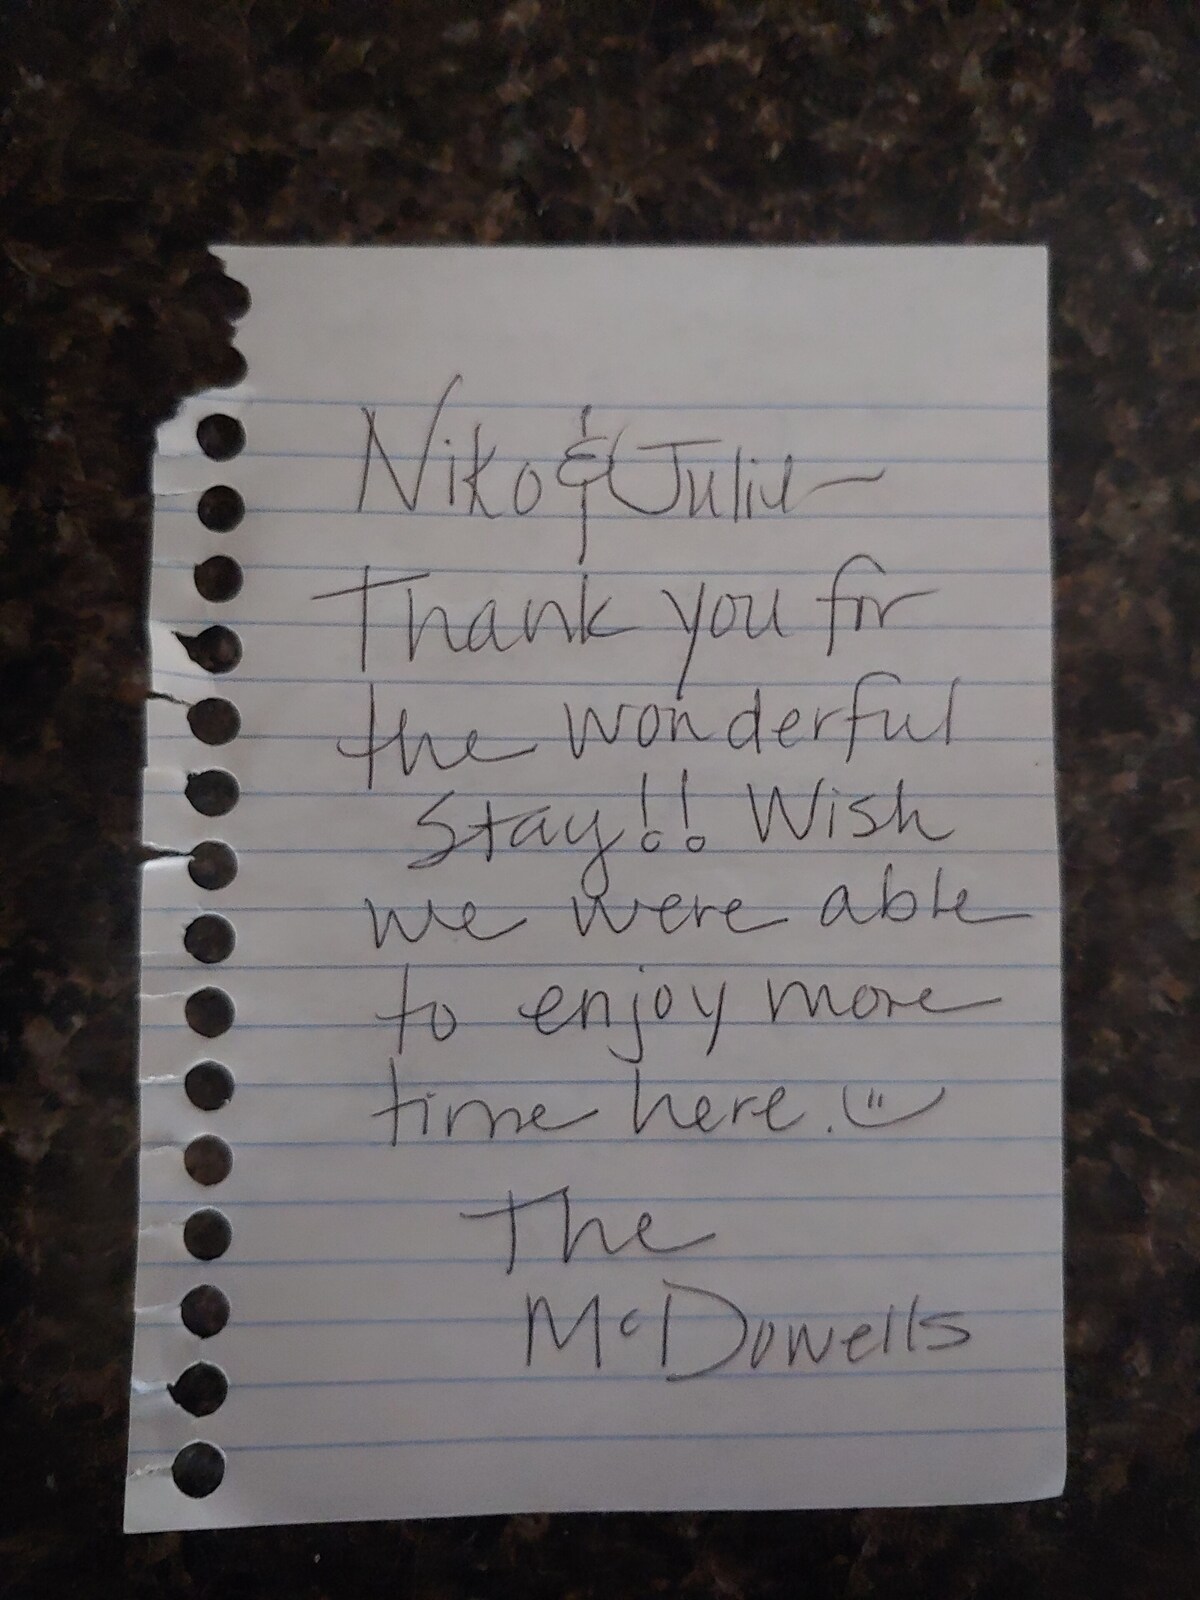 Niko & Julie -
Thank you for
the wonderful
stay!! Wish
we were able
to enjoy more
time here. :)
The
McDowells